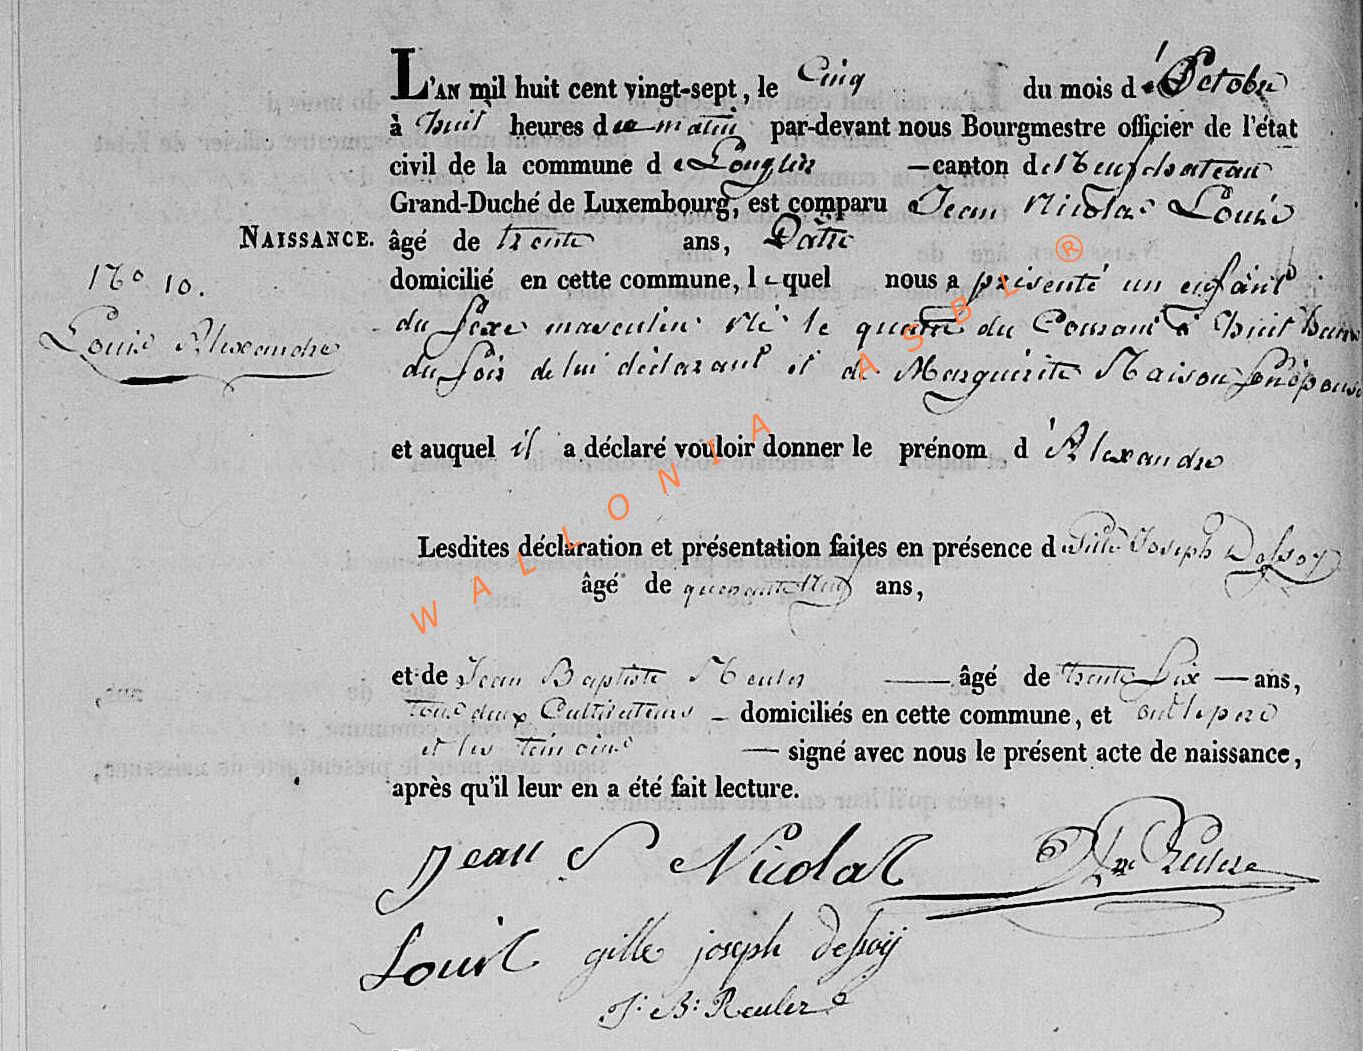 L'AN mil huit cent vingt-sept, le Cinq du mois d'Octobre
à huit heures du matin par-devant nous Bourgmestre officier de l'état
civil de la commune de Longlier — canton de Neufchateau
Grand-Duché de Luxembourg, est comparu Jean Nicolas Louis
NAISSANCE. âgé de trente ans, Pâtre
domicilié en cette commune, lequel nous a présenté un enfant
N° 10.
Louis Alexandre
du sexe masculin Né le quatre du Courant à huit heures
du soir de lui déclarant et de Marguerite Maison son épouse
et auquel il a déclaré vouloir donner le prénom d'Alexandre
Lesdites déclaration et présentation faites en présence de Gille Joseph Dessoy
âgé de quarante Neuf ans,
et de Jean Baptiste Reuler — âgé de trente Six — ans,
tous deux Cultivateurs — domiciliés en cette commune, et ont le père
et les témoins — signé avec nous le présent acte de naissance,
après qu'il leur en a été fait lecture.
Jean Nicolas
Louis gille joseph dessoij
J: B: Reuler
WALLONIA ASBL ®